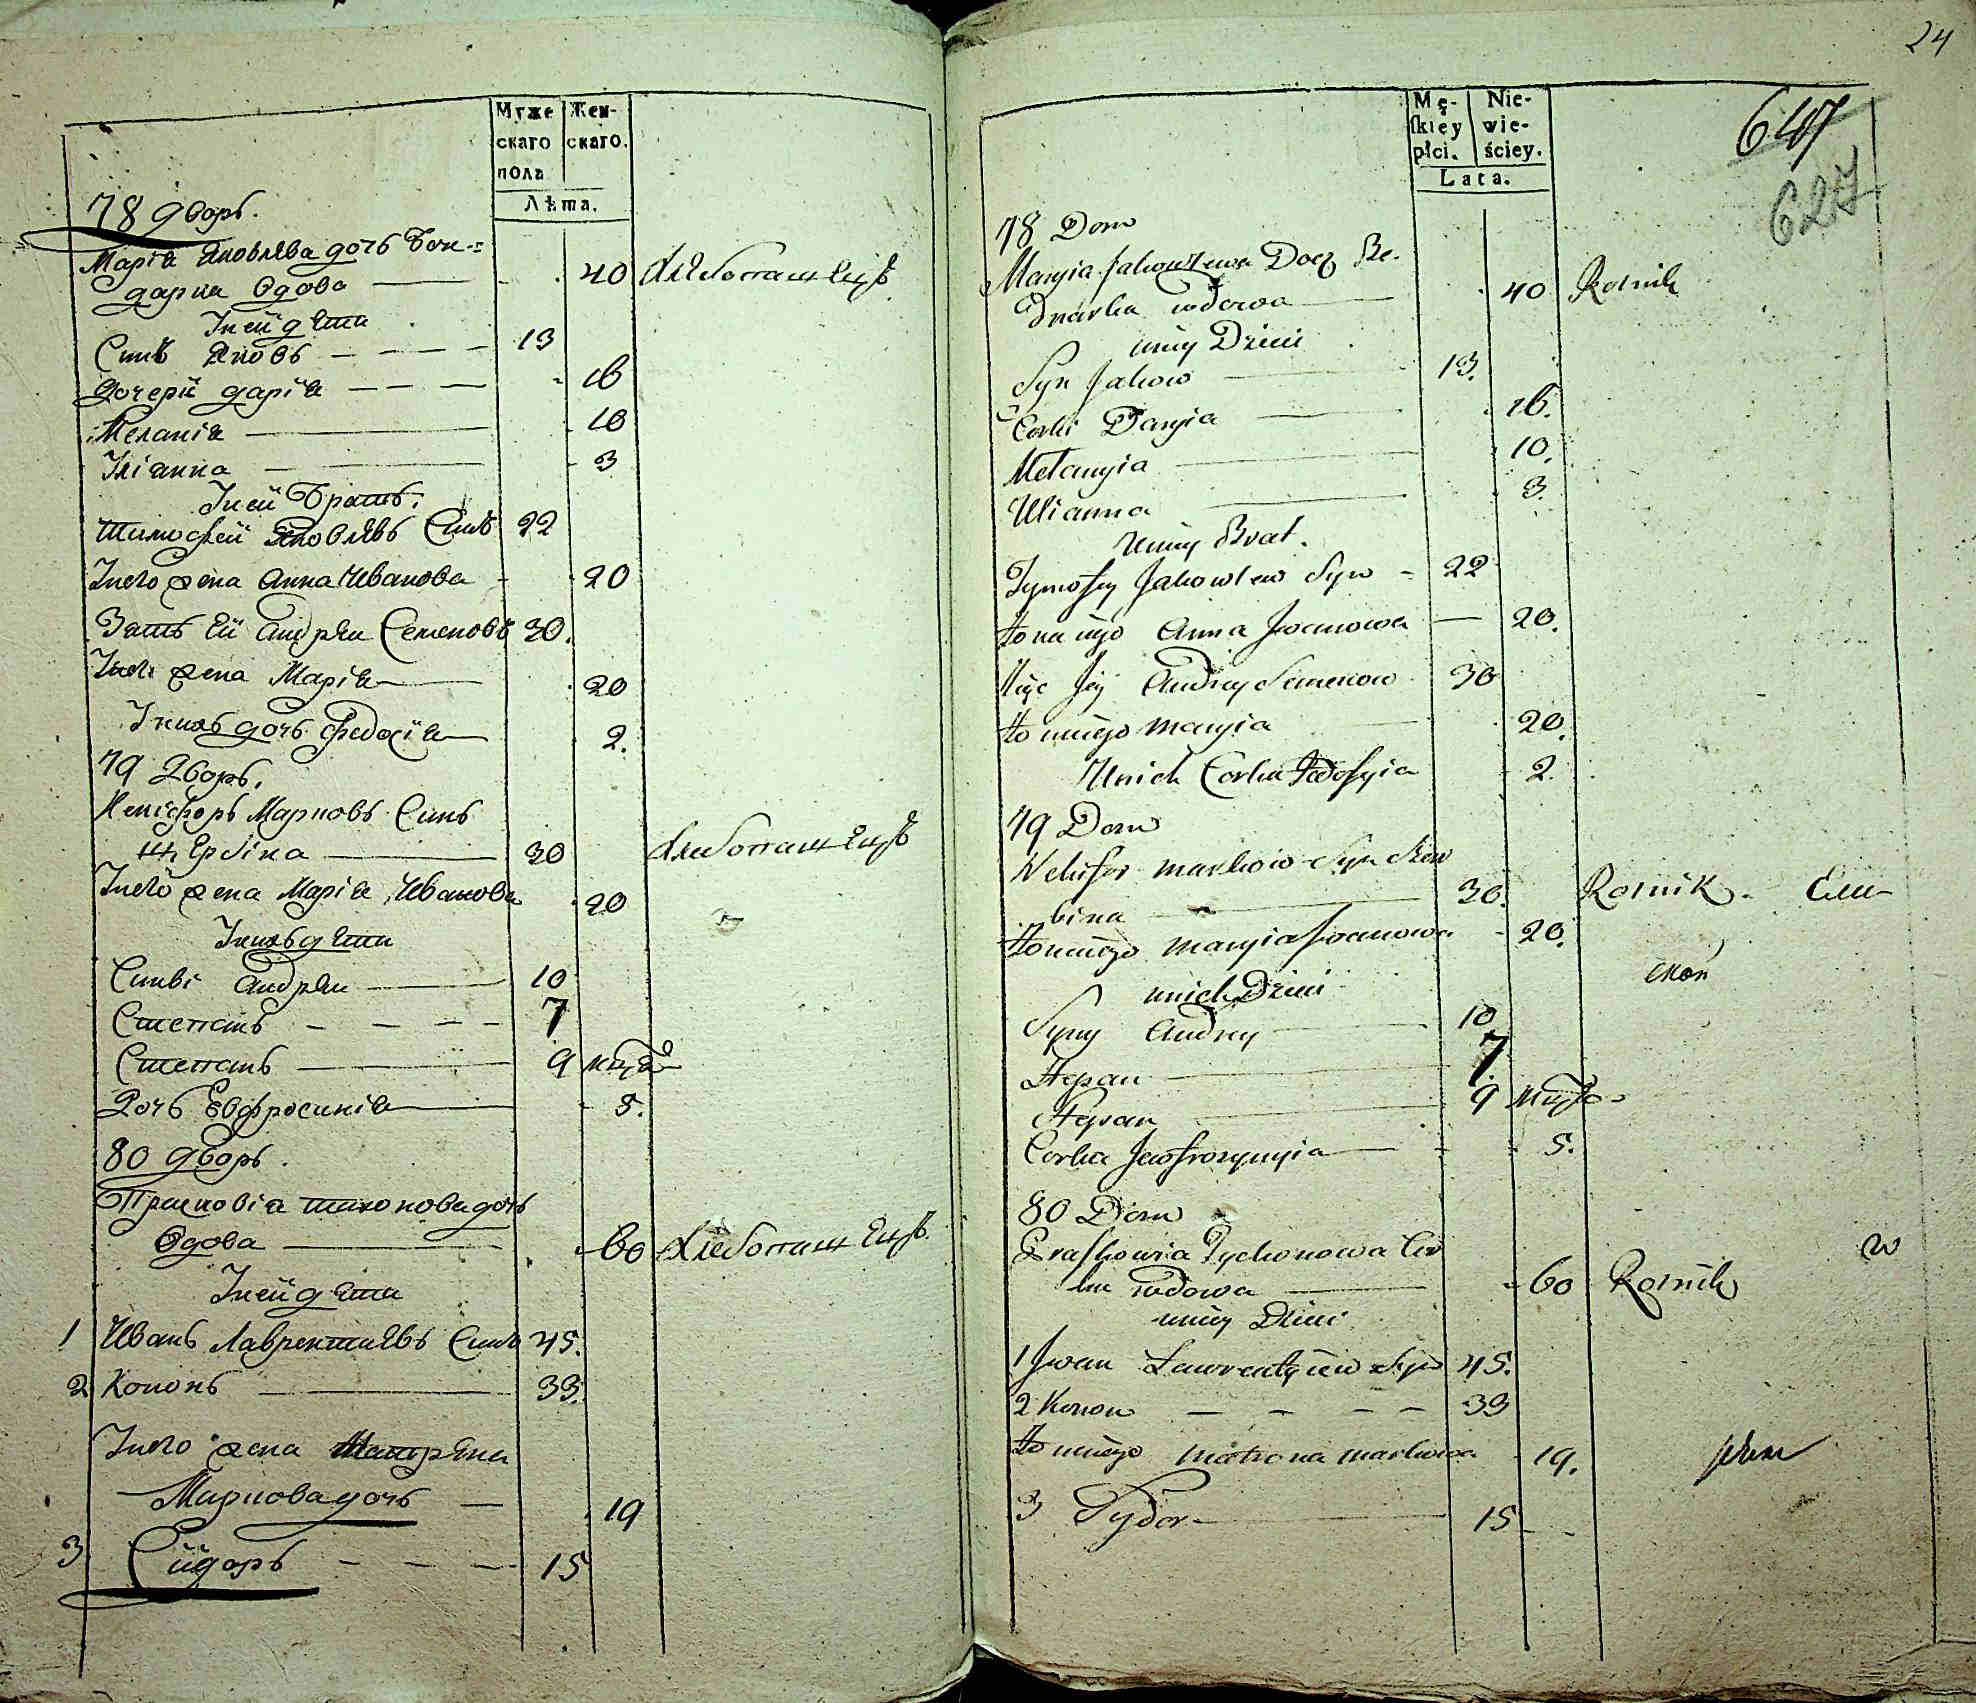 Муже
скаго
пола
Жен-
скаго.
Лѣта.
78 дворъ.
Маріа Яковлѣва дочъ Бон-
дарка Вдова 40 хлѣбопашецъ
Унеи дети
Синъ Яковъ 13
Дочери Даріа 16
Меланіа 10
Уліанна 3
Унеи Братъ.
Тимофеи Яковлѣвъ Синъ 22
Унего жена Анна Иванова 20
Зять еи Андрѣи Семеновъ 30.
Унего жена Маріа 20
Унихъ дочъ Федосіа 2.
79 Дворъ.
Никіфоръ Марковъ Синъ
щербіна 30 хлебопашецъ
Унего жена Маріа Иванова 20
Унихъ дети
Сини Андрѣи 10
Степанъ 7
Степанъ 9
Дочъ Евфросиніа 5.
80 дворъ.
Прасковіа тихонова дочъ
Вдова 60 хлебопашецъ
Унеи дети
1 Иванъ Лаврентиевъ Синъ 45.
2 Кононъ 33.
Унего жена Матрѣна
Маркова дочъ 19
3 Сидоръ 15
24
Mę-
skiey
płci.
Nie-
wie-
ściey.
Lata.
647
627
78 Dom
Maryia Jakowlewa Docz Be.
dnarka wdowa 40 Rolnik
uniey Dzieci
Syn Jakow 13.
Corki Daryia 16.
Melanyia 10.
Ulianna 3.
Uniey Brat.
Tymofey Jakowlew Syn 22
żona iego Anna Iwanowa 20.
Zięc Jey Andrey Semenow 30
żona iego Maryia 20.
Unich Corka Fedosyia 2.
79 Dom
Nekifor Markow Syn Szczer
bina 30. Rolnik
żona iego Maryia Iwanowa 20.
unich Dzieci
Syny Andrey 10
Stepan 7.
Stepan 9
Corka Jewfrozynyia 5.
80 Dom
Praskowia Tychonowa Cor
ka wdowa 60 Rolnik
uniey Dzieci
1 Iwan Lawrentyiew Syn 45.
2 Konon 33
żona iego Matrona Markowa 19.
3 Sydor 15